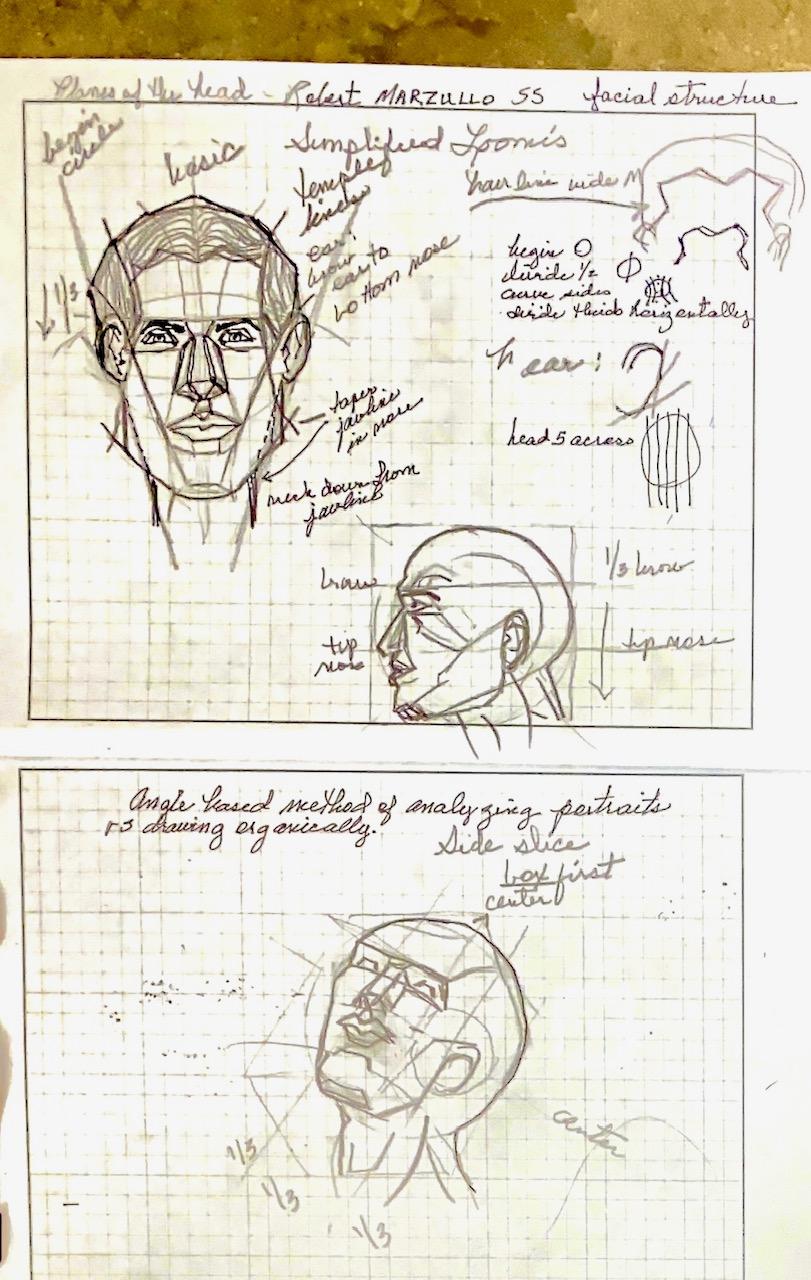 Planes of the head - Robert MARZULLO SS facial structure
begin
circle
basic
Simplified Loomis
temples
lines
ear:
brow
ear to
bottom nose
hair line wide M
begin O
divide 1/2
curve sides
divide thirds horizontally
1/3
ear:
head 5 across
taper
jawline
in more
neck down from
jawline
brow
1/3 brow
tip
nose
tip nose
Angle based method of analyzing portraits
+3 drawing organically.
Side slice
box first
center
center
1/3
1/3
1/3